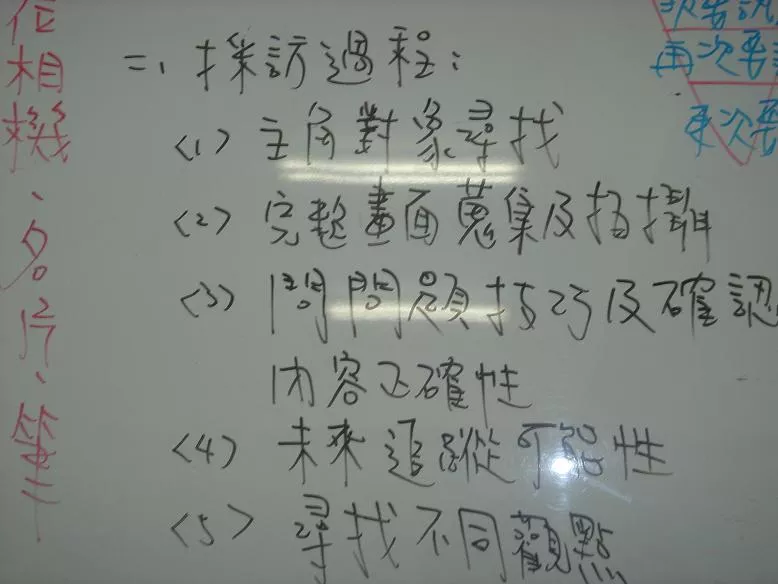 二、採訪過程:
<1> 主角對象尋找
<2> 完整畫面蒐集及拍攝
<3> 問問題技巧及確認
內容正確性
<4> 未來追蹤可能性
<5> 尋找不同觀點
位相機、名片、筆
次要
再次要
更次要